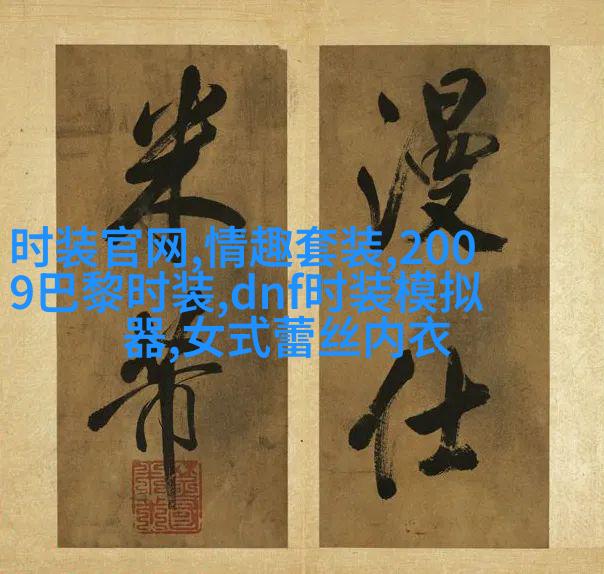 漫仕
米芾
时装官网,情趣套装,200
9巴黎时装,dnf时装模拟
器,女式蕾丝内衣